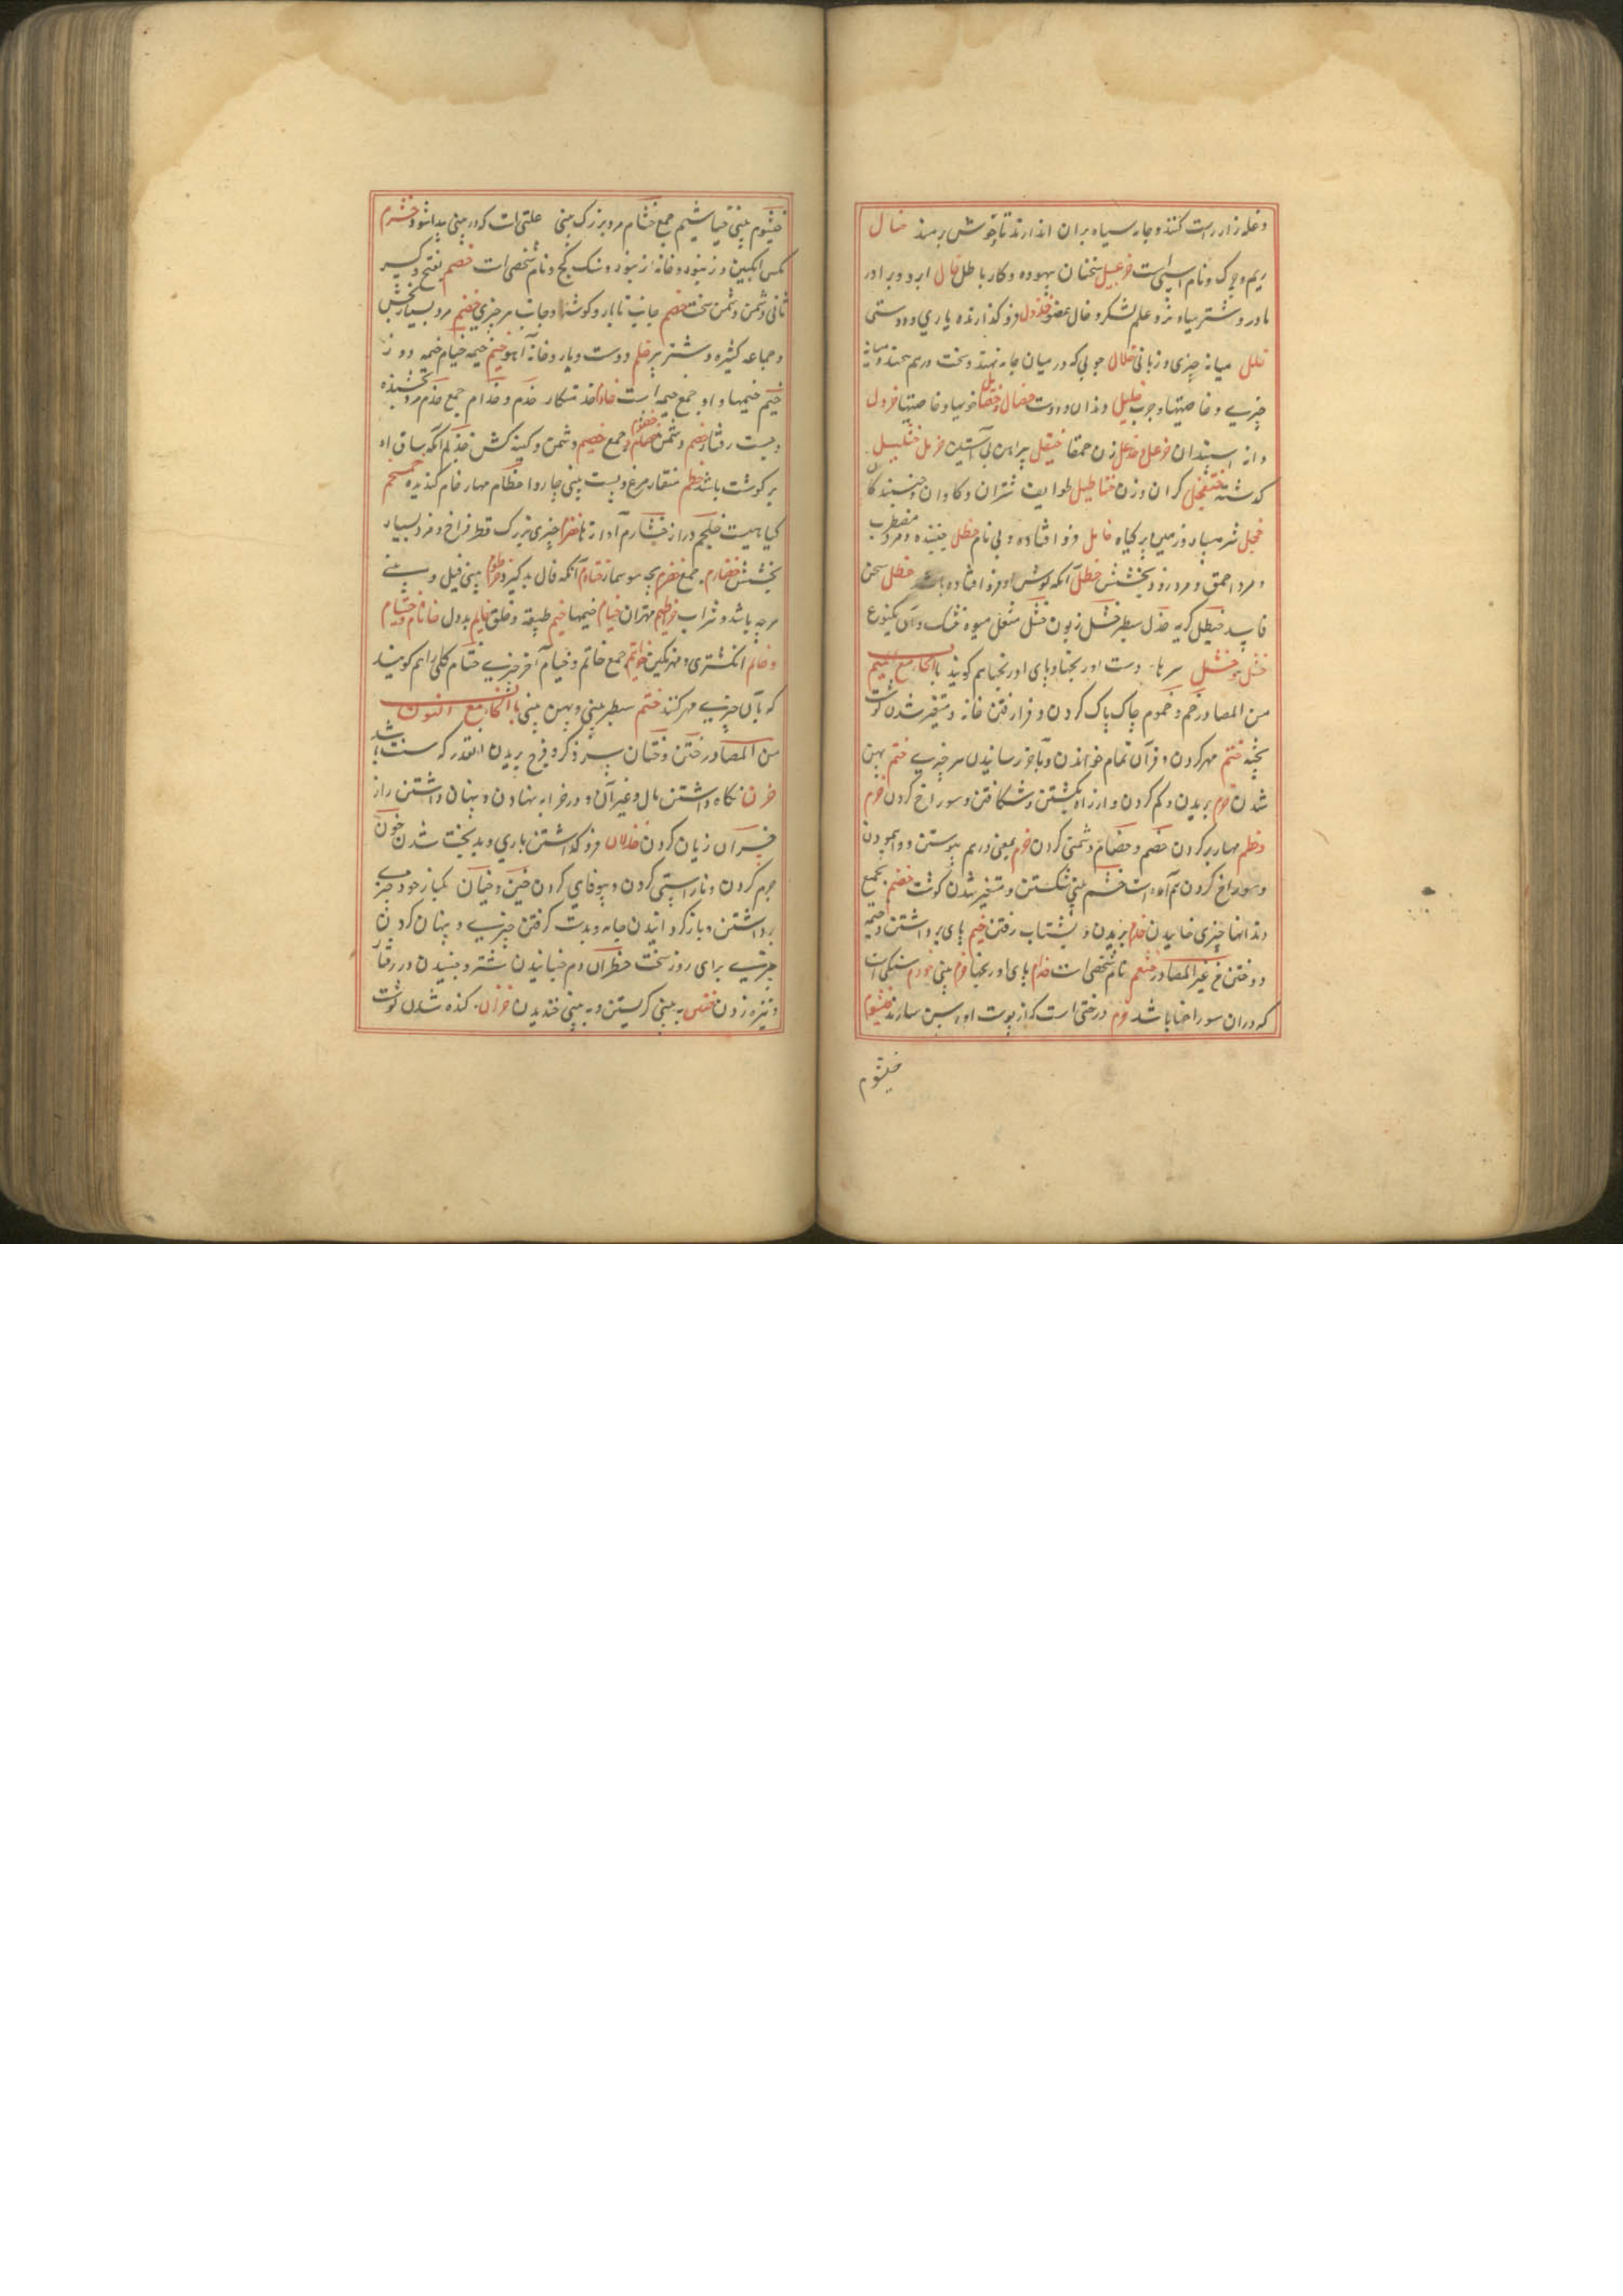 و غله زار راست کنند و جامه سیاه بران اندازند تا خوش برمند خال
ریم و چرک و نام اسپی است خزعبیل سخنان بیهوده و کار باطل خال ابر و برادر
مادر و شتر سیاه نر و علم لشکر و خال عضو خذول فرو گذارنده یاری و دوستی
خلل میانه چیزی و زبانی خلال چوبی که در میان جامه نهند و سخت درهم
چیزی و خاصیتها و چوب خلیل و دوست خصال خویها و خاصیتها خردل
دانه اسپندان خزعل خذعل زن حمقا خیعل پیراهن بی آستین خرمل خنثلیل
گذشته خنشلیل گران وزن خناطیل طوایف شتران و گاوان
خجل شرمسار و زمین پر گیاه خامل فرو افتاده و بی نام خطل جنبنده و مرد مضطرب
و مرد احمق و مرد زود بخشش خطل آنکه گوش او فرو افتاده باشد خطل سخن
فاسد خیطل گربه خدل سطبر خشل زبون خشل مقل میوه خشک و آن یکنوع
خشل سرهاء دست اورنجها و پای اورنجها هم گویند باب الخاء مع المیم
من المصادر خم و خموم چاه پاک کردن و فرا رفتن خانه و متغیر شدن گوشت
پخته ختم مهر کردن و قرآن تمام خواندن و بآخر رسانیدن هر چیزی خثم پهن
شدن خرم بریدن و کم کردن و از راه بگشتن و شکافتن و سوراخ کردن خزم
و خطم مهار بر کردن خصم و خصام دشمنی کردن خرم بمعنی درهم پیوستن و وا پیمودن
و سوراخ کردن هم آمده است خشم بینی شکستن و متغیر شدن گوشت خضم بجمیع
دندانها چیزی خاییدن خذم بریدن و بشتاب رفتن خیم پای برداشتن و خیمه
دوختن من غیر المصادر خثعم نام شخصی است خدام پای اورنجها خرم بینی خورم سنگی است
که دران سوراخها باشد خزم درختی است که از پوست او رسن سازند خیشوم
خیشوم
خیشوم بینی خیاشیم جمع خشام مرد بزرگ بینی علتی است که در بینی پیدا شود خشرم
مگس انگبین و زنبور و خانه زنبور و سنگ گچ و نام شخصی است خصم بفتح و کسر
ثانی دشمن و دشمن سخت خصم جانب تا بار و گوشها و جانب هر چیزی خضم مرد بسیار بخش
و جماعه کثیره و شتر پر خلم دوست و یار و خانه آهو خیم خیمه خیام خیمه دوز
خیم خیمها و او جمع خیمه است خادم خدمتکار خدم و خدام جمع خذم مرد بخشنده
و پست رفتار خصم دشمن خصام جمع خصیم دشمن و کینه کش خدلم آنکه ساق او
پر گوشت باشد خطم منقار مرغ و پیست بینی چاروا خطام مهار خام گندیده خمخم
گیاهیست خلجم دراز خشارم آوازها خضرم چیزی بزرگ قطر فراخ و مرد بسیار
بخشش خضارم جمع خضرم بچه سوسمار خثارم آنکه فال بد گیرد خرطوم بینی فیل و بینی
هر چه باشد و شراب خراطیم مهتران خیام خیمها خیم طبیعة و خلق خایم بددل خاتام و خیتام
و خاتم انگشتری و مهر نگین خواتیم جمع خاتم و ختام آخر چیزی ختام گلی را هم گویند
که بآن چیزی مهر کنند خثم سطبر بینی و پهن بینی باب الخاء مع النون
من المصادر ختن و ختان سر ذکر و فرج بریدن انقدر که سنت باشد
خزن نگاه داشتن مال و غیر آن و در خزانه نهادن و پنهان داشتن راز
خسران زیان کردن خذلان فرو گذاشتن یاری و بدبخت شدن خون
جرم کردن و ناراستی کردن و بیوفایی کردن خبن و خبان یکبار خود چیزی
برداشتن و باز گردانیدن جامه و بدست گرفتن چیزی و پنهان کردن
چیزی برای روز سخت خطران دم جنبانیدن شتر و جنبیدن در رفتار
و نیزه زدن خنین به بینی گریستن و به بینی خندیدن خزن گنده شدن گوشت